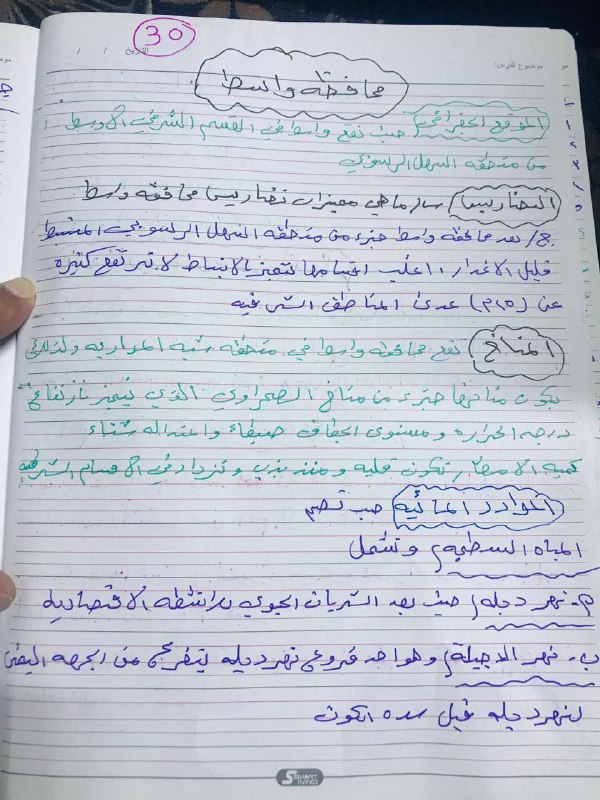 30
التاريخ / /
موضوع الدرس:
محافظة واسط
الموقع الجغرافي حيث تقع واسط في القسم الشرقي الاوسط
من منطقه السهل الرسوبي
التضاريس س/ ماهي مميزات تضاريس محافظه واسط
ج/ تعد محافظه واسط جزء من منطقه السهل الرسوبي المنبسط
قليل الانحدار اغلب اقسامها تتميز بالانبساط لا ترتفع كثيرة
عن (٢٥م) عدى المناطق الشرقيه
المناخ تقع محافظه واسط في منطقه شبه المداريه ولذلك
يكون مناخها جزء من مناخ الصحراوي الذي يتميز بارتفاع
درجه الحراره ومستوى الجفاف صيفاً واعتداله شتاء
كميه الامطار تكون قليله ومتذبذبه وتزداد في الاقسام الشرقيه
الموارد المائية حيث تضم
المياه السطحيه وتشمل
أ- نهر دجله حيث يعد الشريان الحيوي للانشطه الاقتصاديه
ب- نهر الدجيلة وهو احد فروع نهر دجله يتفرع من الجهه اليمنى
لنهر دجله قبل سده الكوت
SMART MIND